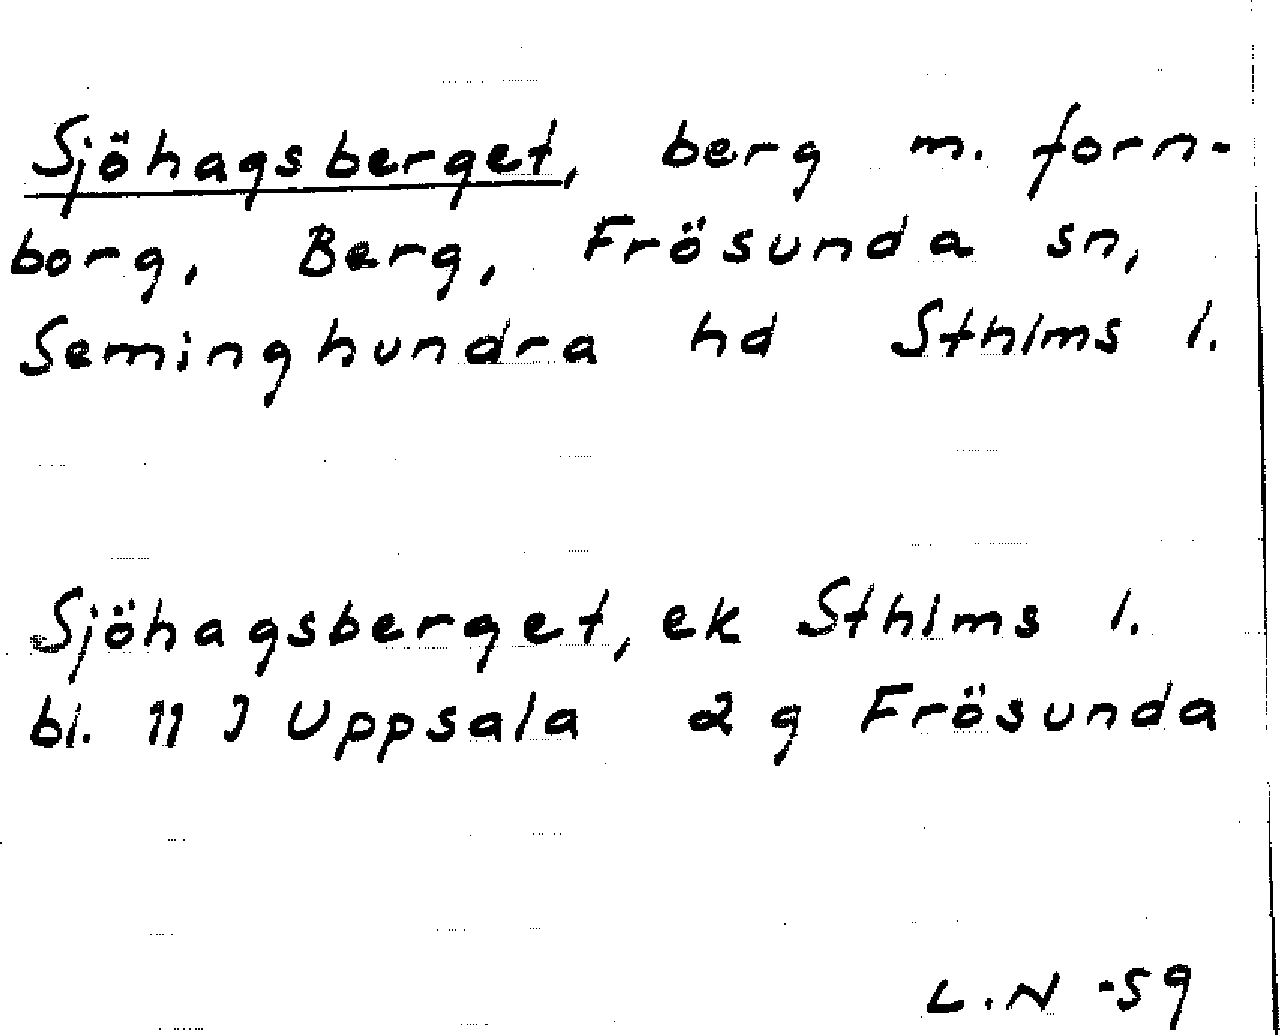 Sjöhagsberget, berg m. forn-
borg, Berg, Frösunda sn,
Seminghundra hd Sthlms l.
Sjöhagsberget, ek Sthlms l.
bl. 11 J Uppsala 2 g Frösunda
L.N -59